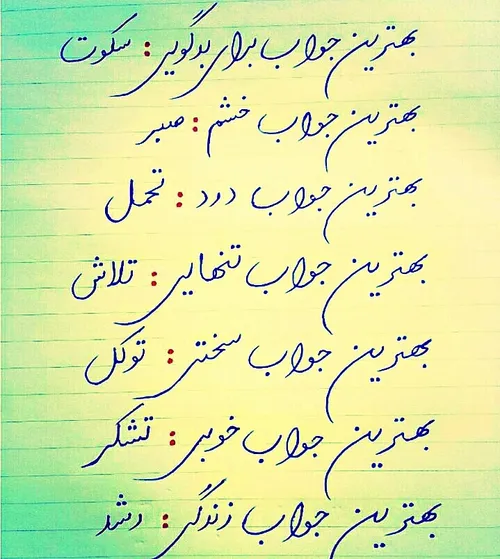 بهترین جواب برای بدگویی : سکوت
بهترین جواب خشم : صبر
بهترین جواب درد : تحمل
بهترین جواب تنهایی : تلاش
بهترین جواب سختی : توکل
بهترین جواب خوبی : تشکر
بهترین جواب زندگی : رشد